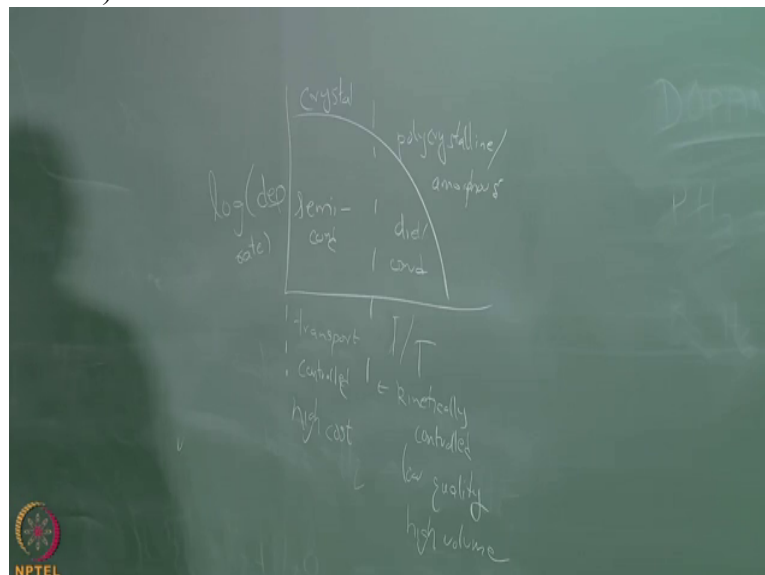 crystal
polycrystalline/
amorphous
log(dep
rate)
semi-
cond
diel/
cond
1/T
transport
controlled
high cost
← kinetically
controlled
low quality
high volume
DOPAN
PH
NPTEL